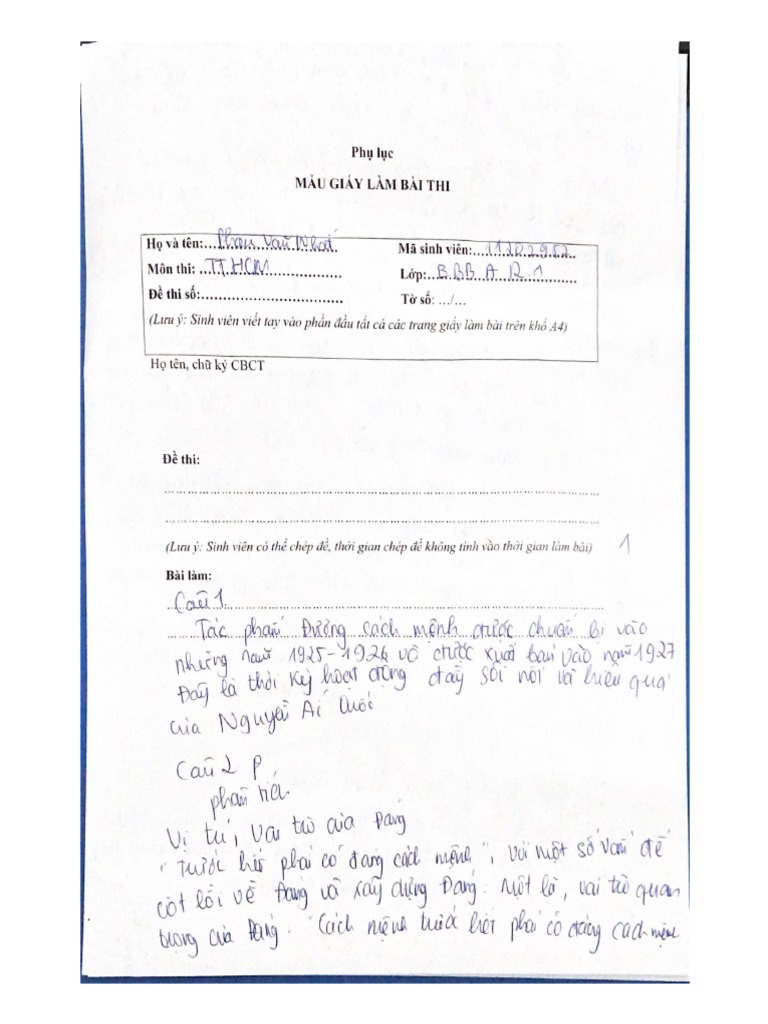 Phụ lục
MẪU GIẤY LÀM BÀI THI
Họ và tên:... Phan Văn Nhất
Mã sinh viên:... 11202952
Môn thi: ... TT.HCM
Lớp:... BBB A R 1
Đề thi số:
Tờ số: .../...
(Lưu ý: Sinh viên viết tay vào phần đầu tất cả các trang giấy làm bài trên khổ A4)
Họ tên, chữ ký CBCT
Đề thi:
(Lưu ý: Sinh viên có thể chép đề, thời gian chép đề không tính vào thời gian làm bài) 1
Bài làm:
Câu 1
Tác phẩm Đường cách mệnh được chuẩn bị vào
những năm 1925-1926 và được xuất bản vào năm 1927
Đây là thời kỳ hoạt động đầy sôi nổi và hiệu quả
của Nguyễn Ái Quốc
Câu 2 P
phân tích
Vị trí, vai trò của Đảng
"Trước hết phải có đảng cách mệnh", với một số vấn đề
cốt lõi về Đảng và xây dựng Đảng. Một là, vai trò quan
trọng của Đảng. "Cách mệnh trước hết phải có đảng cách mệnh